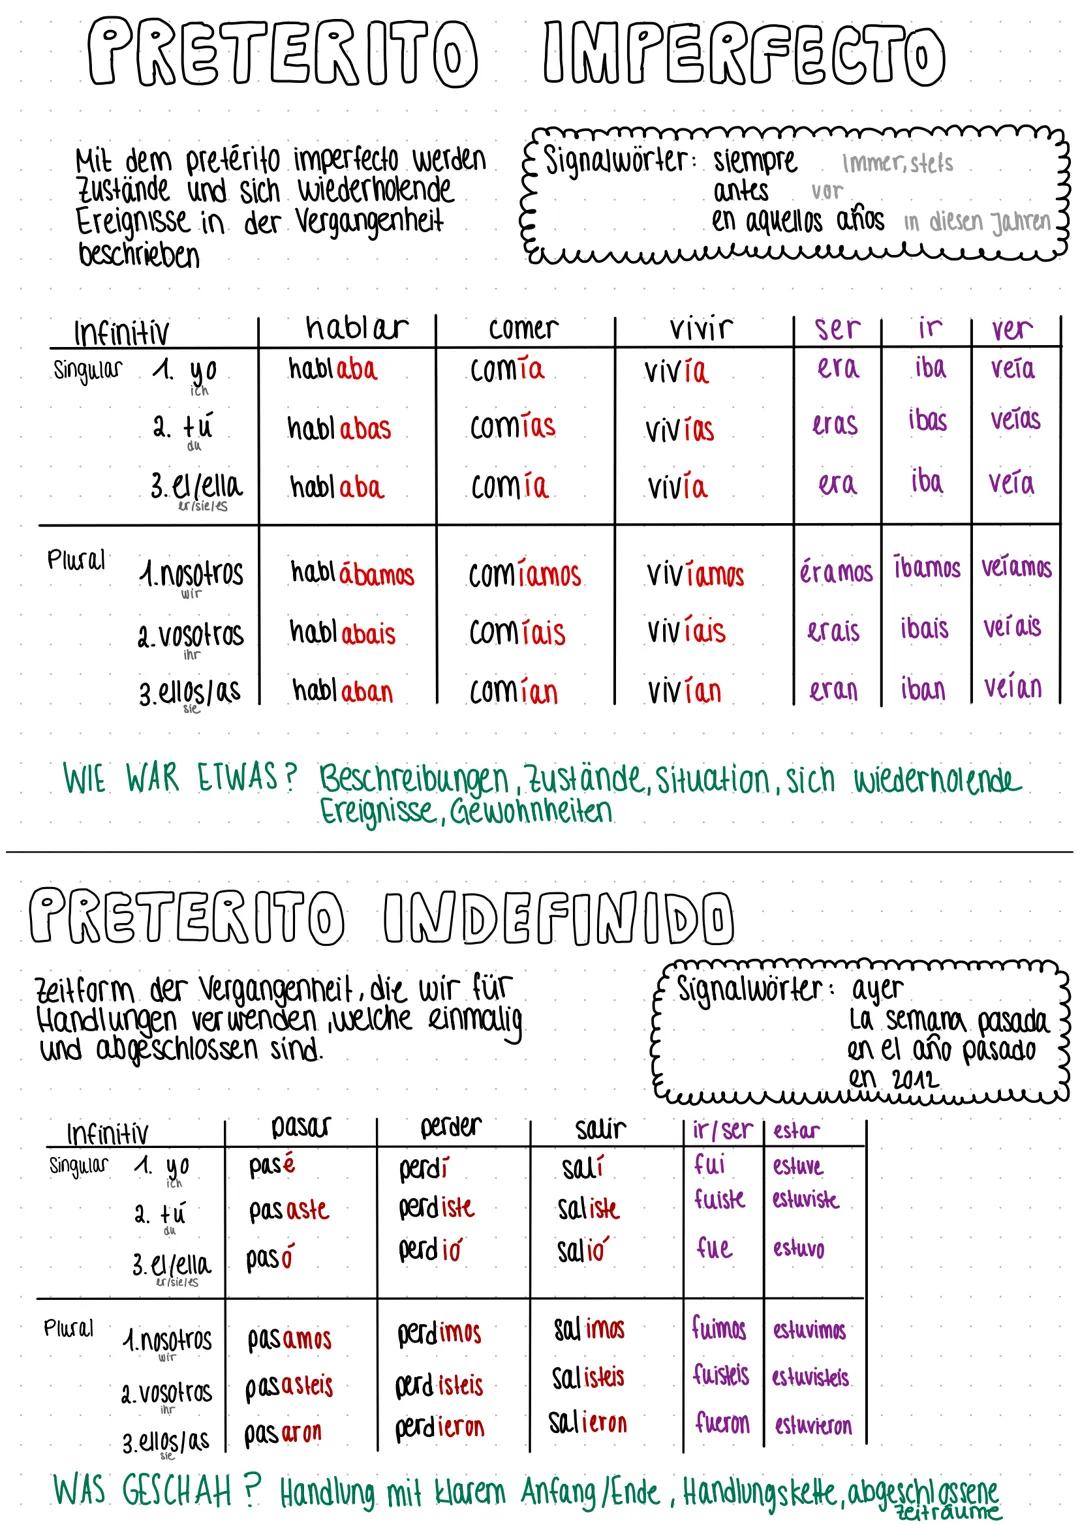 PRETERITO IMPERFECTO
Mit dem pretérito imperfecto werden
Zustände und sich wiederholende
Ereignisse in der Vergangenheit
beschrieben
Signalwörter: siempre Immer, stets
antes vor
en aquellos años in diesen Jahren
Infinitiv hablar comer vivir ser ir ver
Singular 1. yo hablaba comía vivía era iba veía
ich
2. tú hablabas comías vivías eras ibas veías
du
3. el/ella hablaba comía vivía era iba veía
er/sie/es
Plural
1. nosotros hablábamos comíamos vivíamos éramos íbamos veíamos
wir
2. vosotros hablabais comíais vivíais erais ibais veíais
ihr
3. ellos/as hablaban comían vivían eran iban veían
sie
WIE WAR ETWAS? Beschreibungen, Zustände, Situation, sich wiederholende
Ereignisse, Gewohnheiten
PRETERITO INDEFINIDO
Zeitform der Vergangenheit, die wir für
Handlungen verwenden, welche einmalig
und abgeschlossen sind.
Signalwörter: ayer
La semana pasada
en el año pasado
en 2012
Infinitiv pasar perder salir ir/ser estar
Singular 1. yo pasé perdí salí fui estuve
ich
2. tú pasaste perdiste saliste fuiste estuviste
du
3. el/ella pasó perdió salió fue estuvo
er/sie/es
Plural
1. nosotros pasamos perdimos salimos fuimos estuvimos
wir
2. vosotros pasasteis perdisteis salisteis fuisteis estuvisteis
ihr
3. ellos/as pasaron perdieron salieron fueron estuvieron
sie
WAS GESCHAH? Handlung mit klarem Anfang/Ende, Handlungskette, abgeschlossene
Zeiträume